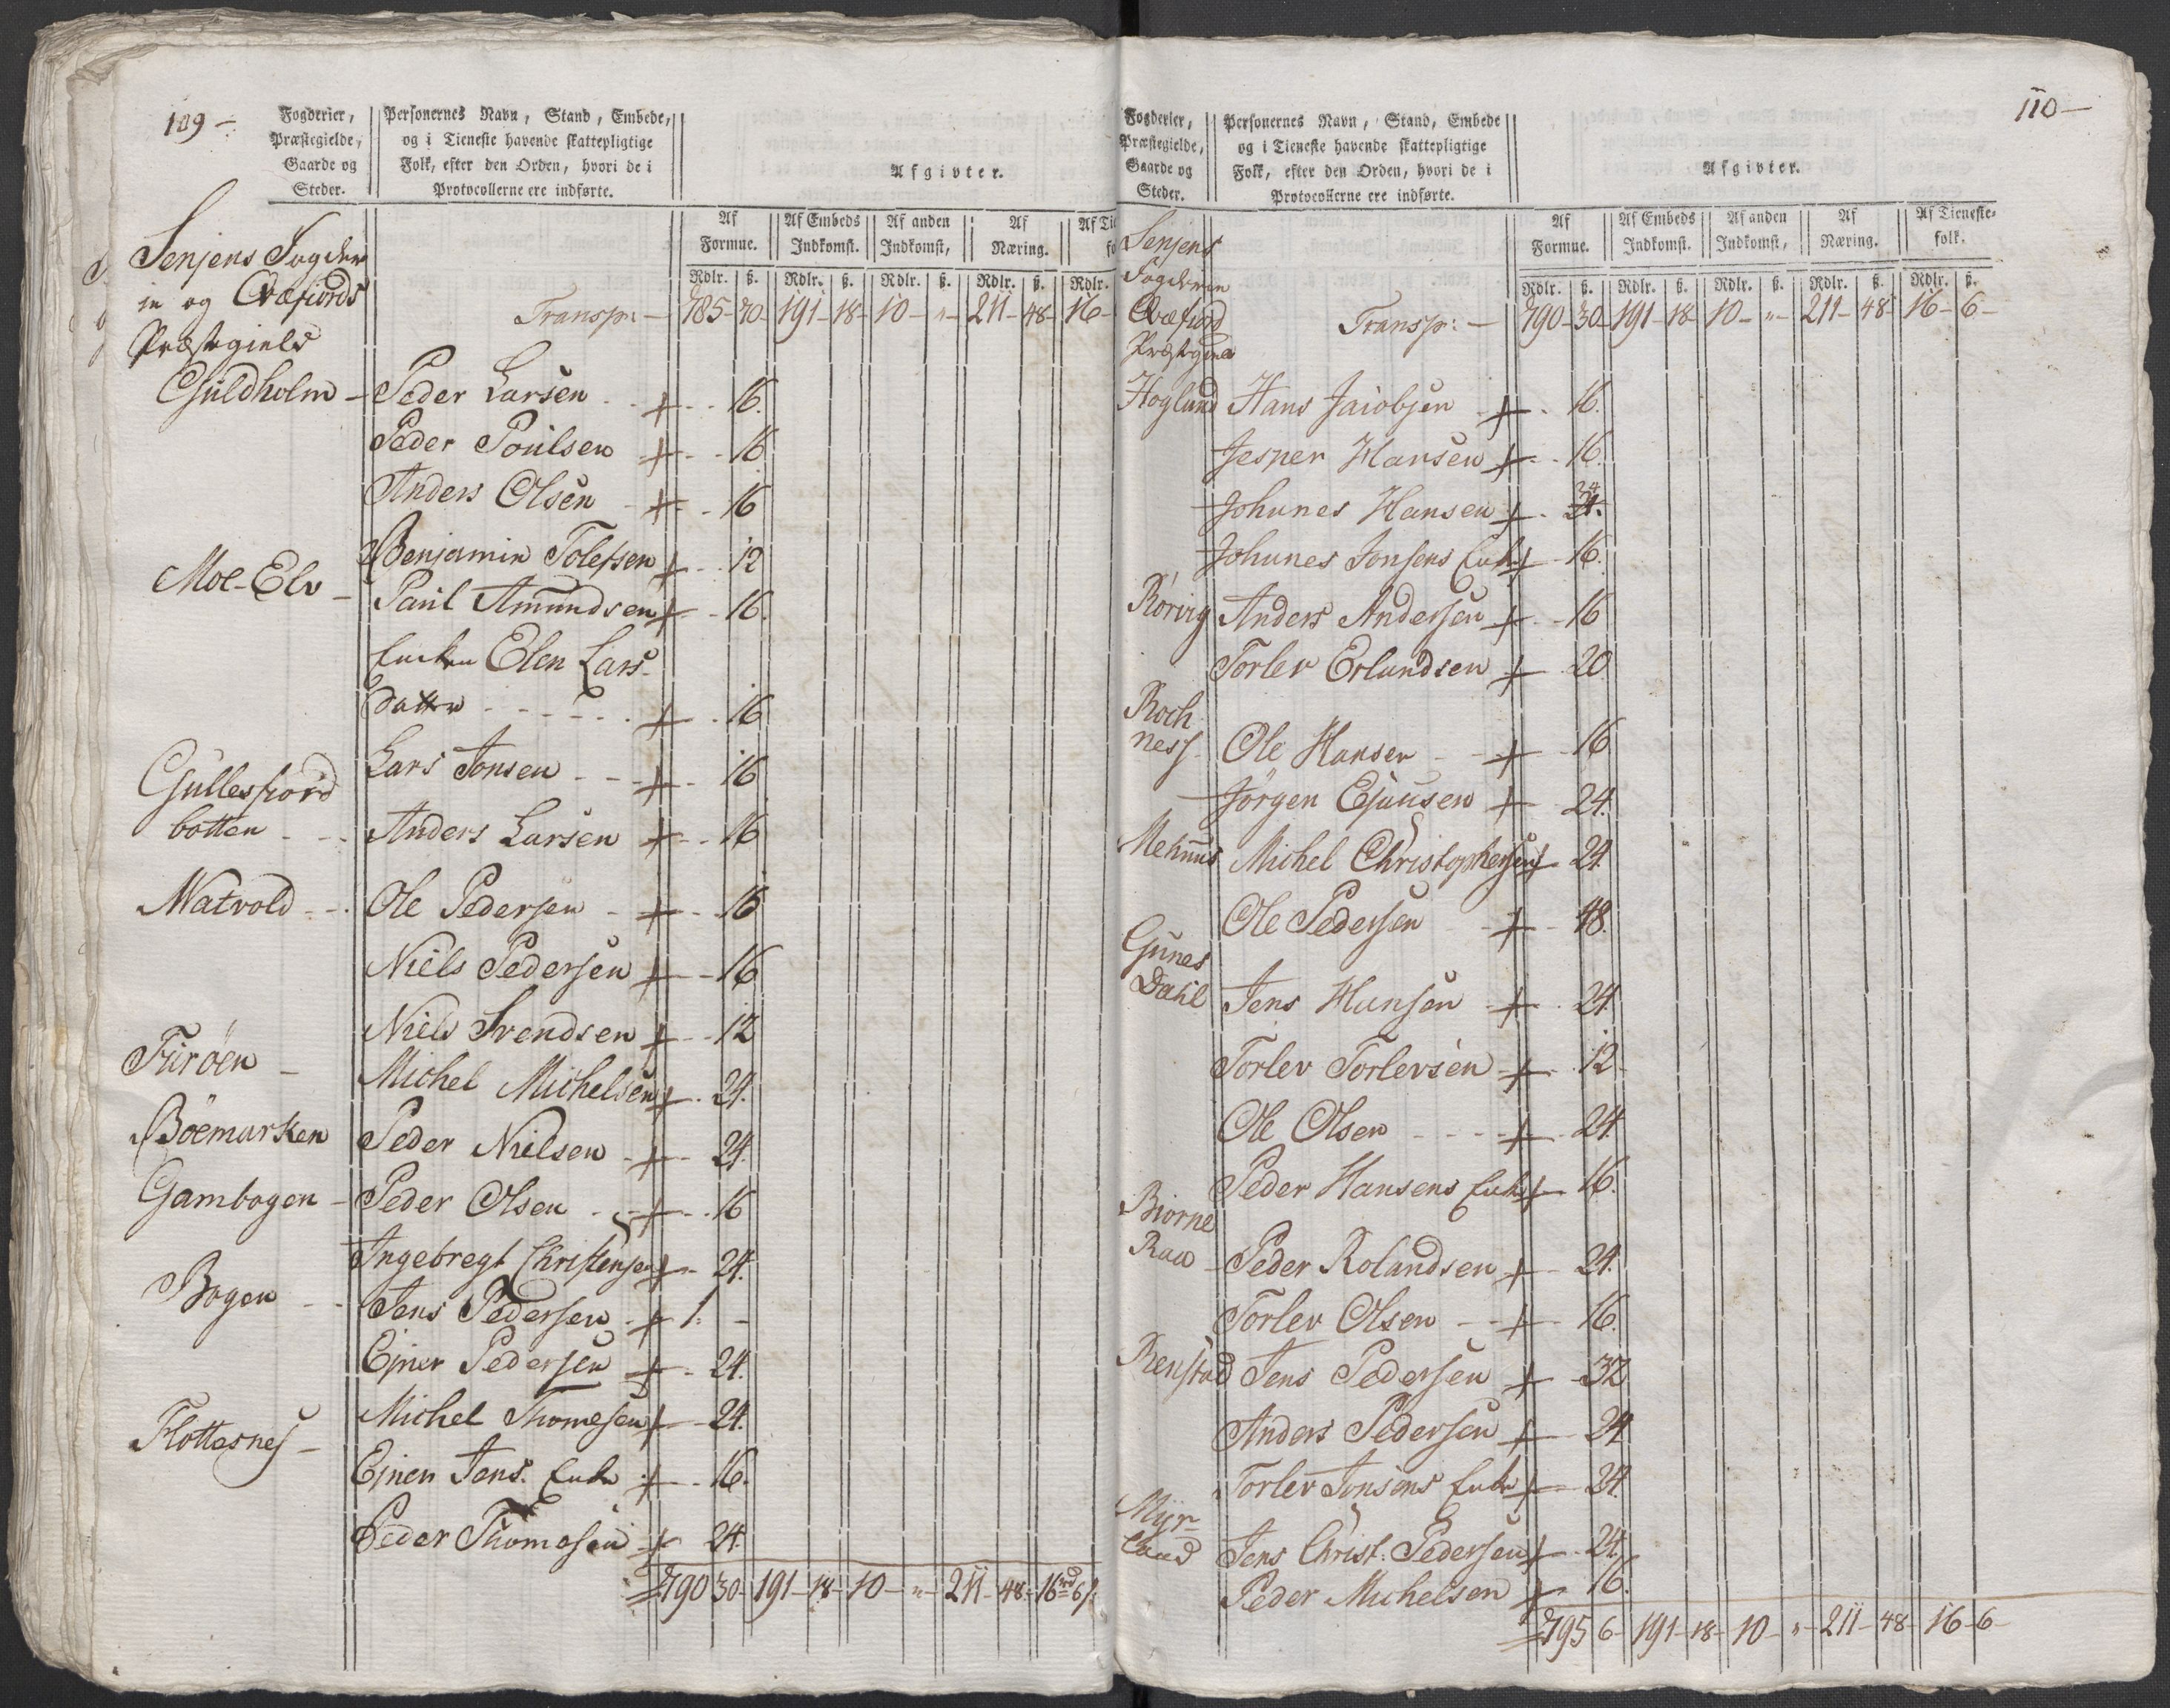 109 -
Fogderier, Præstegielde, Gaarde og Steder.
Personernes Navn, Stand, Embede, og i Tieneste havende skattepligtige Folk, efter den Orden, hvori de i Protocollerne ere indførte.
Afgivter.
Af Formue. Af Embeds Indkomst. Af anden Indkomst, Af Næring. Af Ti
Rdlr. ß. Rdlr. ß. Rdlr. ß. Rdlr. ß. Rdlr.
Senjens Fogder
ie og Qvæfiords
Præstegield
Transp: - 785 - 70 - 191 - 18 - 10 - " - 211 - 48 - 16 -
Guldholm - Peder Larsen + 16.
Peder Poulsen + 16
Anders Olsen + 16
Benjamin Tolefsen + 12
Moe-Elv - Paul Amundsen + 16.
Enken Elen Lars-
datter + 16
Lars Jonsen + 16
Gullesfiord
botten - Anders Larsen + 16
Natvold - Ole Pedersen + 16
Niels Pedersen + 16
Niels Svendsen + 12
Furöen - Michel Michelsen + 24.
Böemarken Peder Nielsen + 24.
Gambogen - Peder Olsen + 16
Ingebregt Christensen + 24.
Bogen - Jens Pedersen + 1. -
Ejner Pedersen + 24.
Michel Thomesen + 24.
Flottesnes - Ejnen Jens. Enke + 16.
Peder Thomasen + 24.
790 30 - 191 - 18 - 10 - " - 211 - 48 - 16 rd 6 ß
110 -
Fogderier, Præstegielde, Gaarde og Steder.
Personernes Navn, Stand, Embede og i Tieneste havende skattepligtige Folk, efter den Orden, hvori de i Protocollerne ere indførte.
Afgivter.
Af Formue. Af Embeds Indkomst. Af anden Indkomst, Af Næring. Af Tieneste- folk.
Rdlr. ß. Rdlr. ß. Rdlr. ß. Rdlr. ß. Rdlr. ß.
Senjens
Fogderie
Qvæfiord
Transp: - 790 - 30 - 191 - 18 - 10 - " - 211 - 48 - 16 - 6 -
Hoglund Hans Jacobsen + 16.
Jesper Hansen + 16.
Johanes Hansen + 24.
Johanes Jonsens Enke + 16.
Rörvig Anders Andersen + 16
Torlev Erlandsen + 20
Roch
ness Ole Hansen + 16
Jörgen + 24.
Michel Christophersen + 24
Ole Pedersen + 48.
Gunes
Dahl Jens Hansen + 24.
Torlev Torlevsen + 12
Ole Olsen + 24.
Peder Hansens Enke + 16.
Biorne
Raa - Peder Rolandsen + 24.
Torlev Olsen + 16.
Renstad Jens Pedersen + 32
Anders Pedersen + 24
Torlev Jonsens Enke + 24.
Myr-
land Jens Christ: Pedersen + 24.
Peder Michelsen + 16.
795 6 - 191 - 18 - 10 - " - 211 - 48 - 16 - 6 -